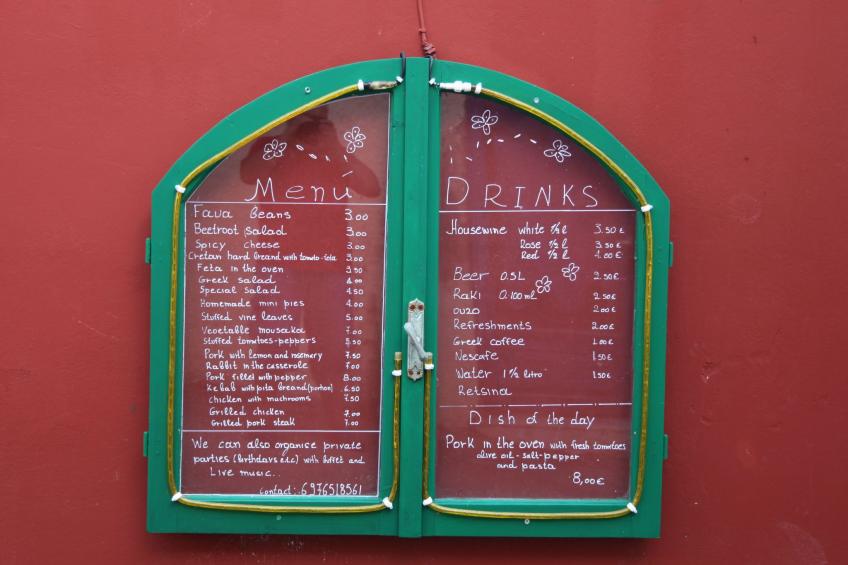 Menu
Fava Beans 3.00
Beetroot Salad 3.00
Spicy cheese 3.00
Cretan hard breand with tomato-feta 3.00
Feta in the oven 3.50
Greek salad 4.00
Special salad 4.50
Homemade mini pies 4.00
Stuffed vine leaves 5.00
Vegetable mousaka 7.00
Stuffed tomatoes-peppers 5.50
Pork with lemon and rosemery 7.50
Rabbit in the casserole 7.00
Pork fillet with pepper 8.00
Kebab with pita breand (portion) 6.50
Chicken with muchrooms 7.50
Grilled chicken 7.00
Grilled pork steak 7.00
We can also organise private
parties (birthdays e.t.c) with buffet and
Live music...
contact: 6976518561
DRINKS
Housewine white ½ l 3.50€
Rose ½ l 3.50€
Red ½ l
Beer 0.5L 2.50€
Raki 0.100ml 2.50€
ouzo 2.00€
Refreshments 2.00€
Greek coffee 1.00€
Nescafe 1.50€
Water 1 ½ litro 1.50€
Retsina
Dish of the day
Pork in the oven with fresh tomatoes
olive oil - salt-pepper
and pasta
8,00€